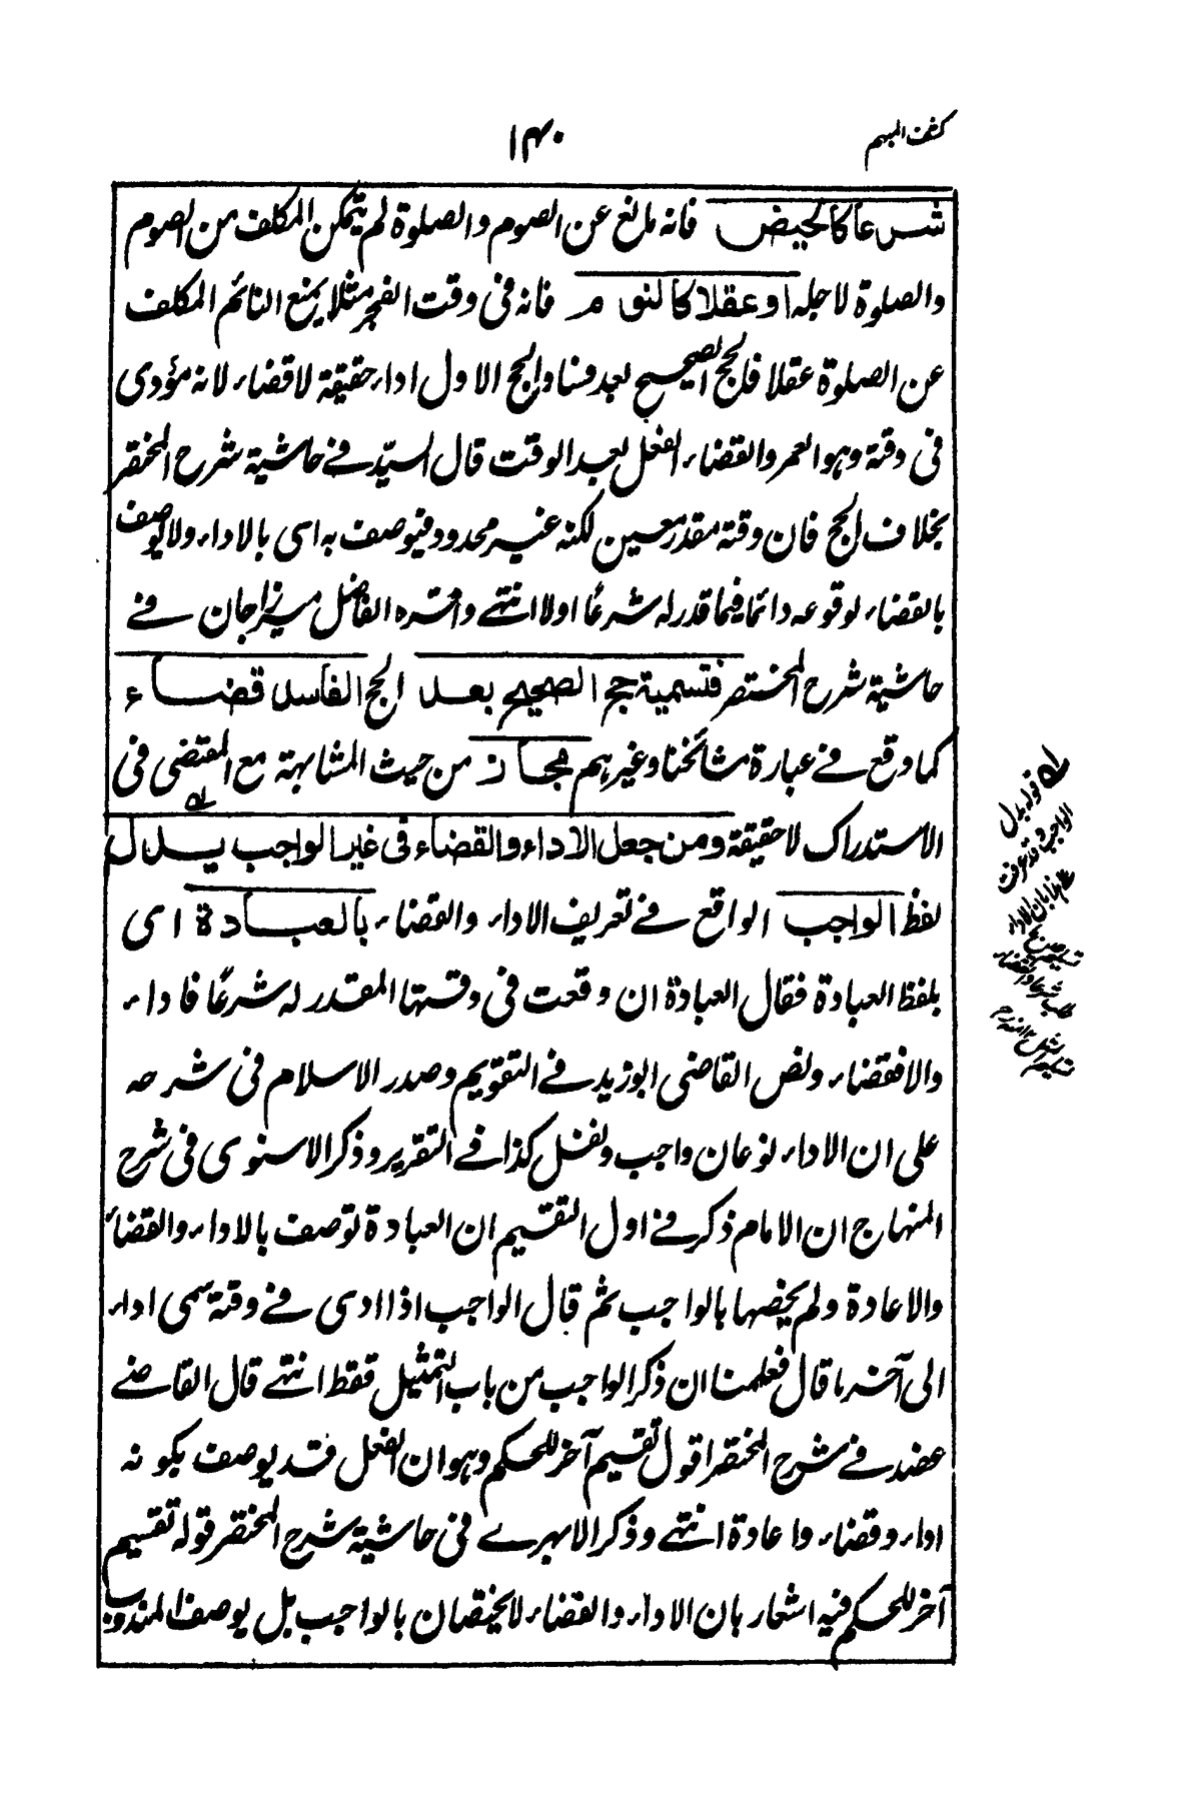 كشف المبهم
١٤٠
شرعا كالحيض فانه مانع عن الصوم والصلوة لم يتمكن المكلف من الصوم
والصلوة لاجله او عقلا كالنوم فانه فى وقت الفجر مثلا يمنع النائم المكلف
عن الصلوة عقلا فالحج الصحيح بعد فساد الحج الاول اداء حقيقة لا قضاء لانه مؤدى
فى وقته وهو العمر والقضاء الفعل بعد الوقت قال السيد فے حاشية شرح المختصر
بخلاف الحج فان وقته مقدر معين لكنه غير محدود فيوصف به اى بالاداء ولا يوصف
بالقضاء لوقوعه دائما فيما قدر له شرعًا اولا انتهے واقره الفاضل ميرزاجان فے
حاشية شرح المختصر فتسمية حج الصحيح بعد الحج الفاسد قضاء
كما وقع فے عبارة مشائخنا وغيرهم مجاز من حيث المشابهة مع المقتضى فى
الاستدراك لا حقيقة ومن جعل الاداء والقضاء فى غير الواجب يبدل
لفظ الواجب الواقع فے تعريف الاداء والقضاء بالعبادة اى
بلفظ العبادة فقال العبادة ان وقعت فى وقتها المقدر له شرعًا فاداء
والا فقضاء ونص القاضى ابوزيد فے التقويم وصدر الاسلام فى شرحه
على ان الاداء نوعان واجب ونفل كذا فے التقرير وذكر الاسنوى فى شرح
المنهاج ان الامام ذكر فے اول التقسيم ان العبادة توصف بالاداء والقضاء
والاعادة ولم يخصها بالواجب ثم قال الواجب اذا ادى فے وقته سمى اداء
الى آخر ما قال فعلمنا ان ذكر الواجب من باب التمثيل فقط انتهے قال القاضے
عضد فے شرح المختصر اقول تقسيم آخر للحكم وهو ان الفعل قد يوصف بكونه
اداء وقضاء واعادة انتهے وذكر الابهرے فى حاشية شرح المختصر قوله تقسيم
آخر للحكم فيه اشعار بان الاداء والقضاء لا يختصان بالواجب بل يوصف المندوب
لے قوله يبدل
الواجب وقد عرفت